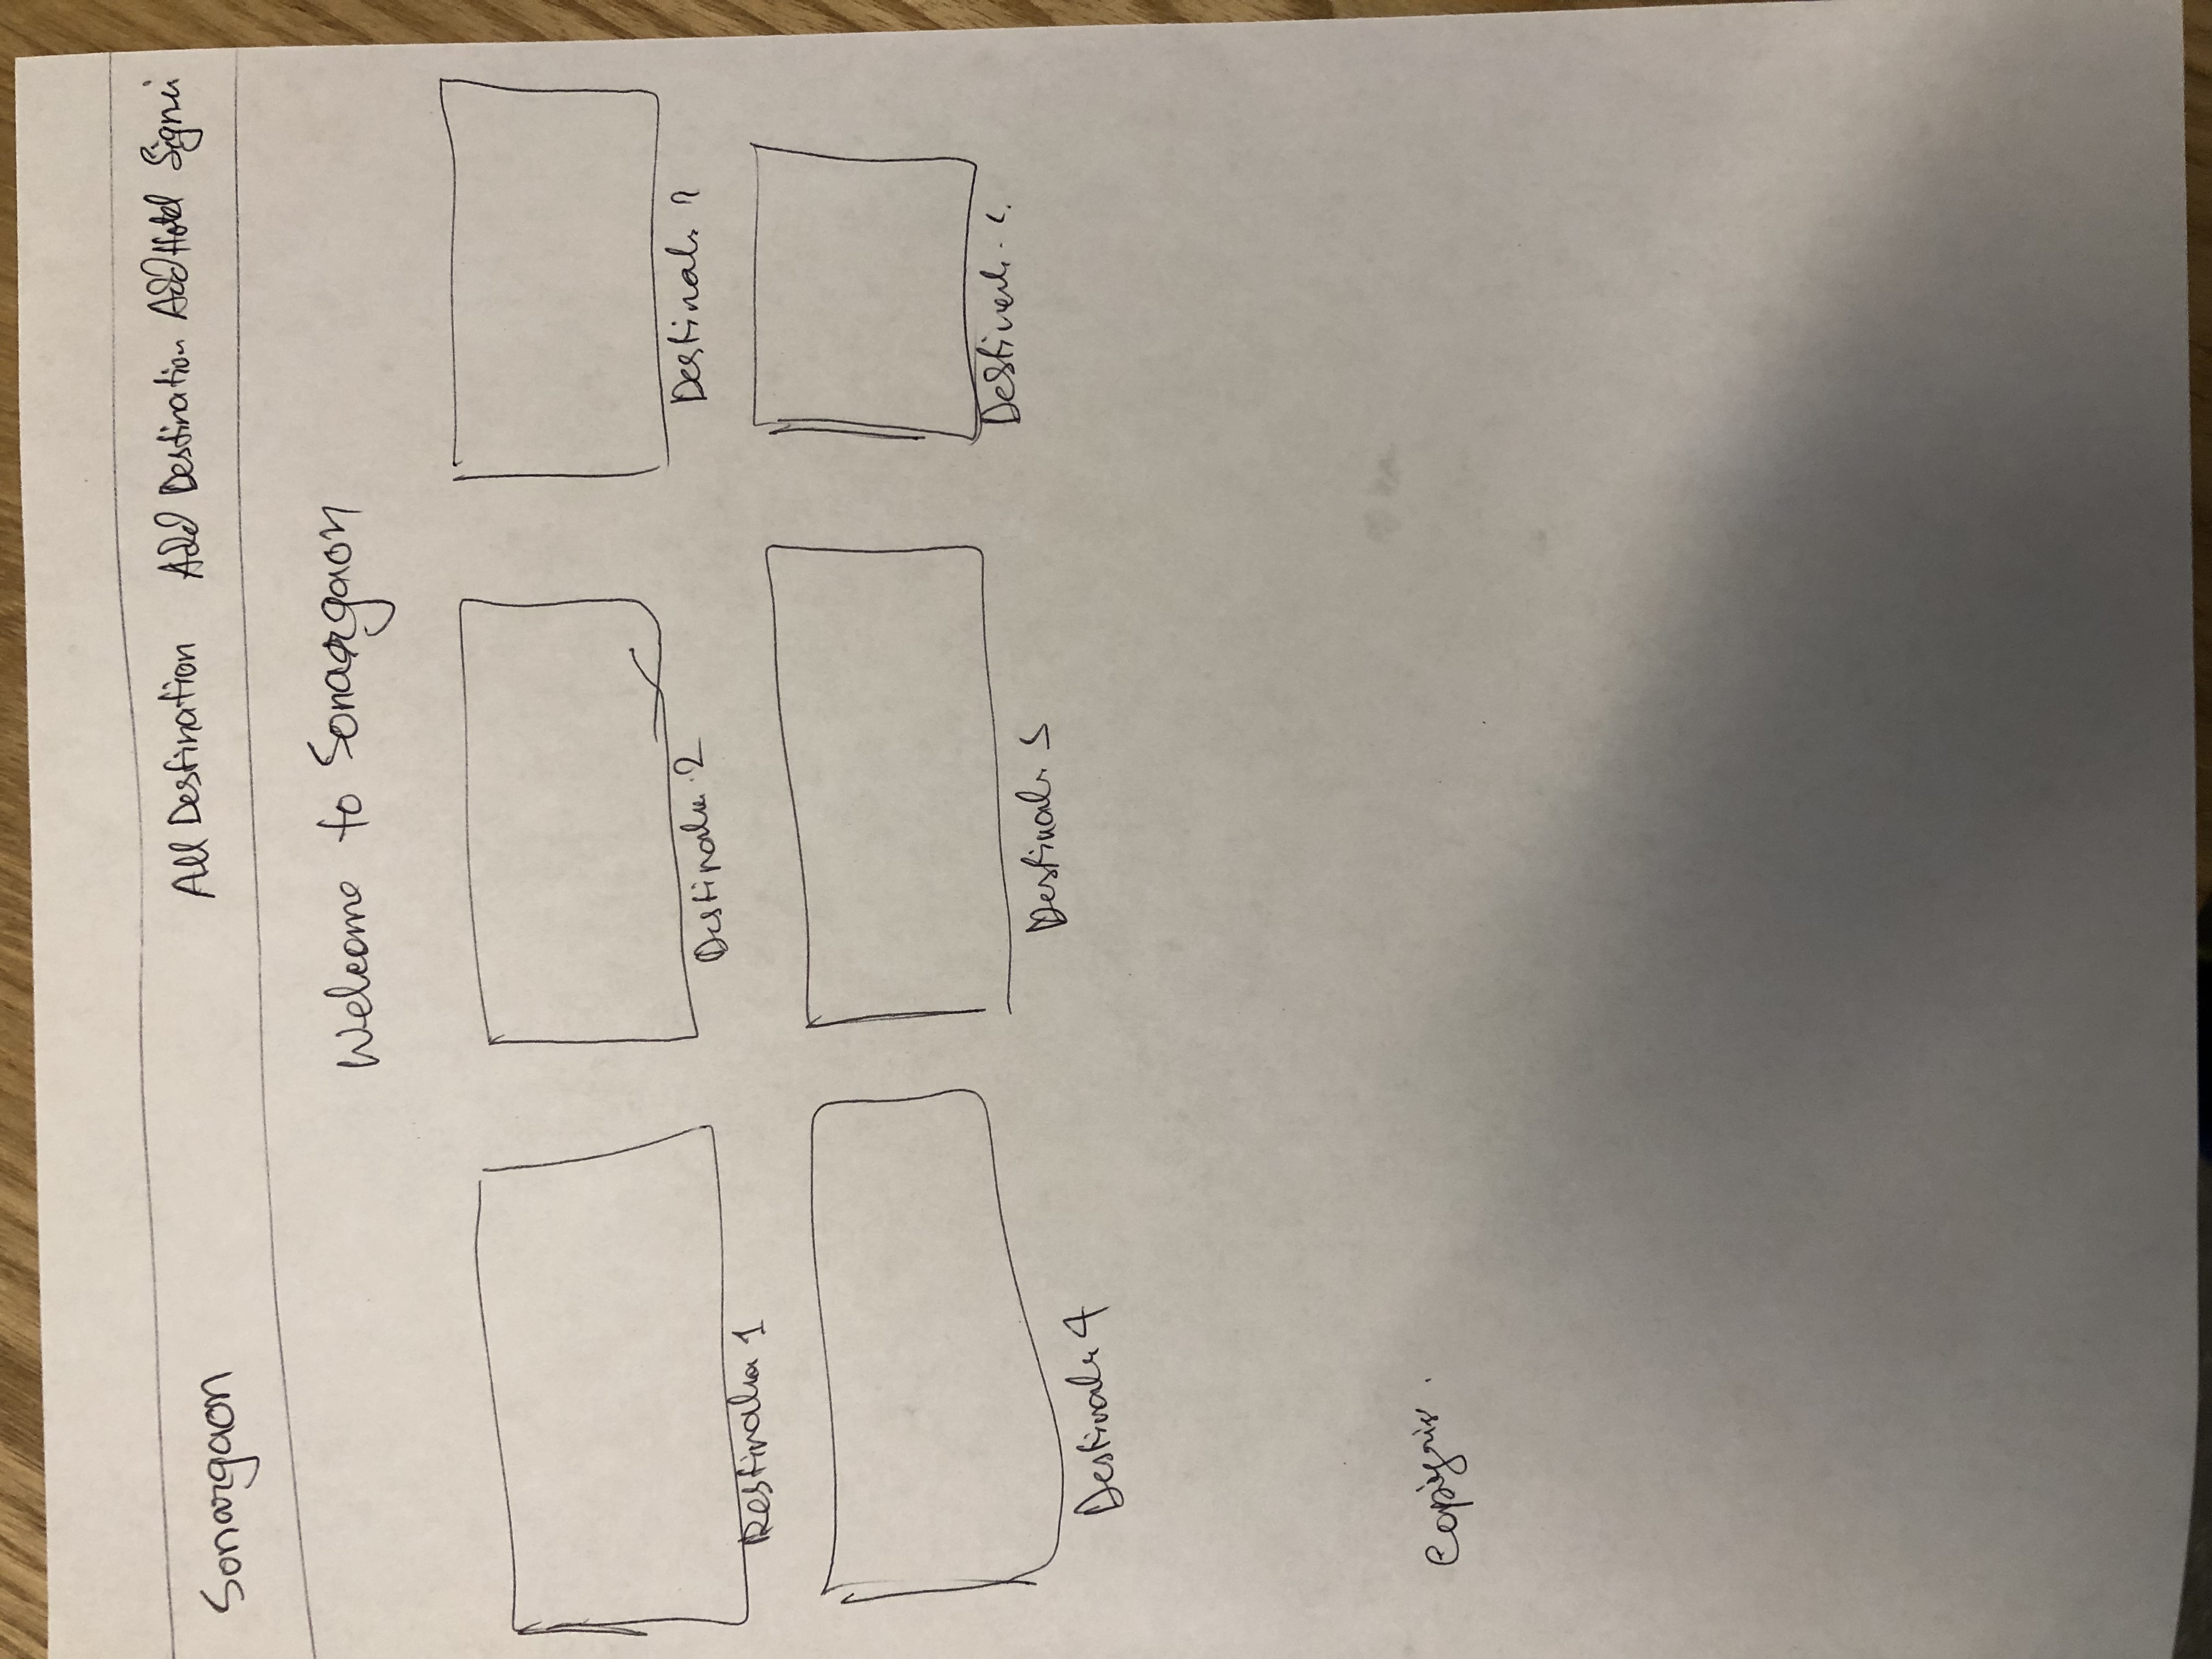 Sonargaon All Destination Add Destination Add Hotel Signin
Welcome to Sonargaon
Destination 1 Destination 2 Destination
Destination 4 Destination 5 Destination